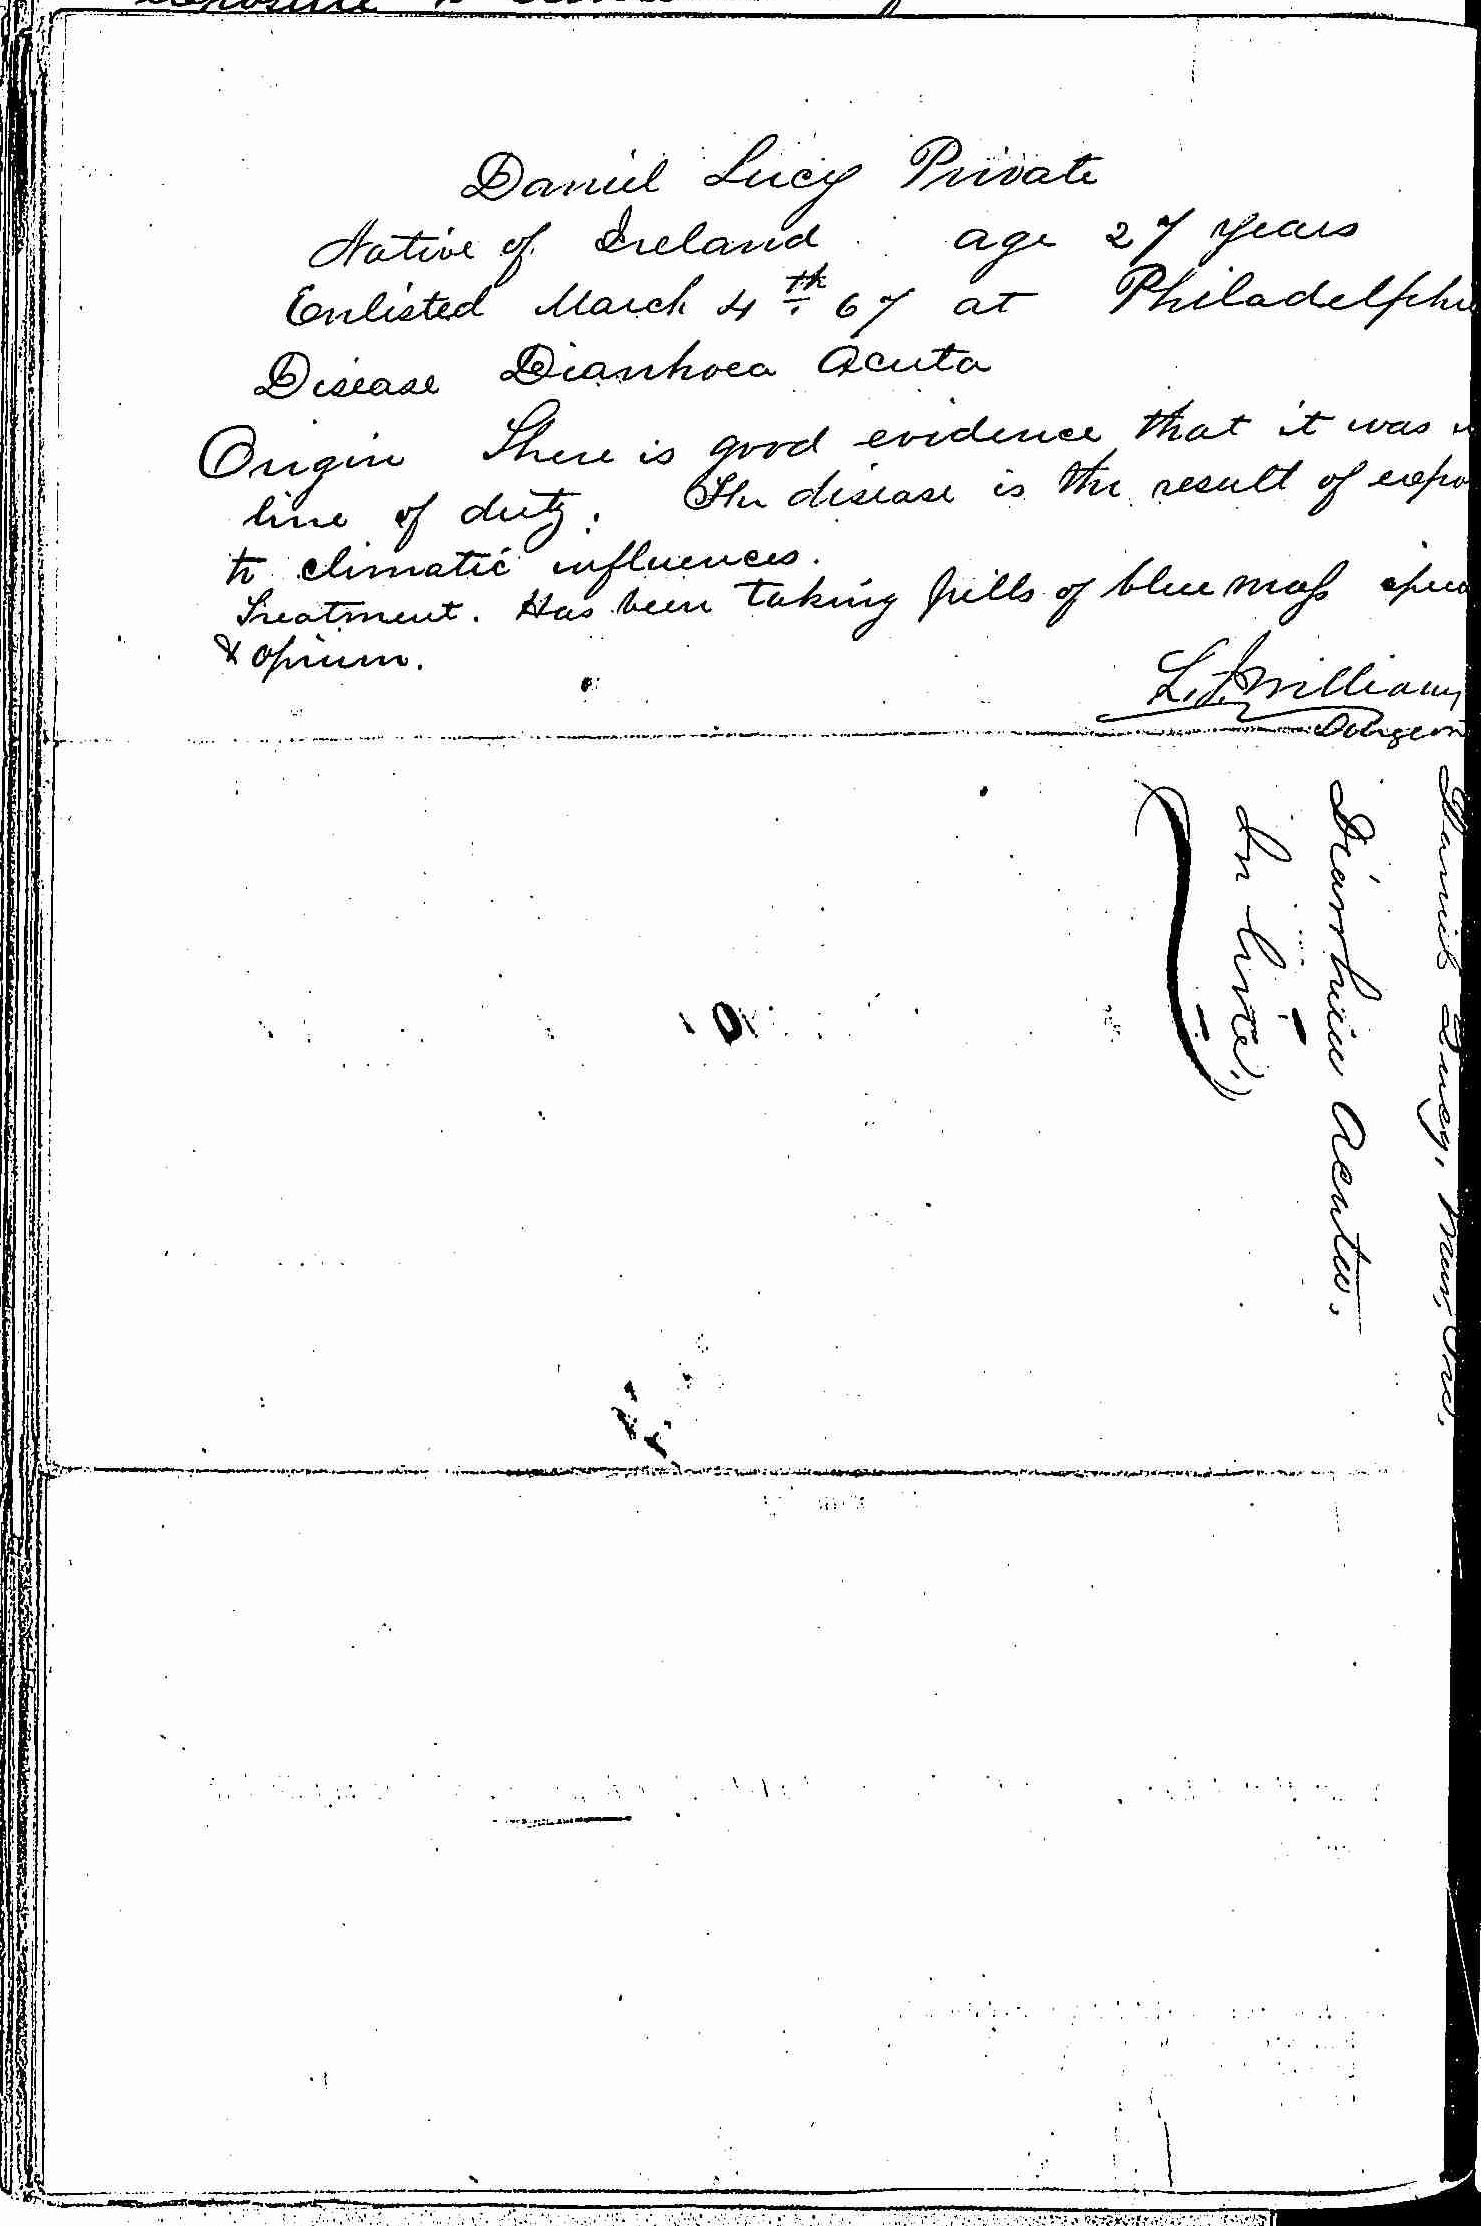 Daniel Lucy Private
Native of Ireland age 27 years
Enlisted March 4th 67 at Philadelphi
Disease Diarrhoea Acuta
Origin There is good evidence that it was
line of duty. The disease is the result of expo
to climatic influences.
Treatment. Has been taking pills of blue mass ipeca
& opium.
L. J. Williams
Surgeon
Daniel Lucy,
Diarrhœa Acuta.
In line.